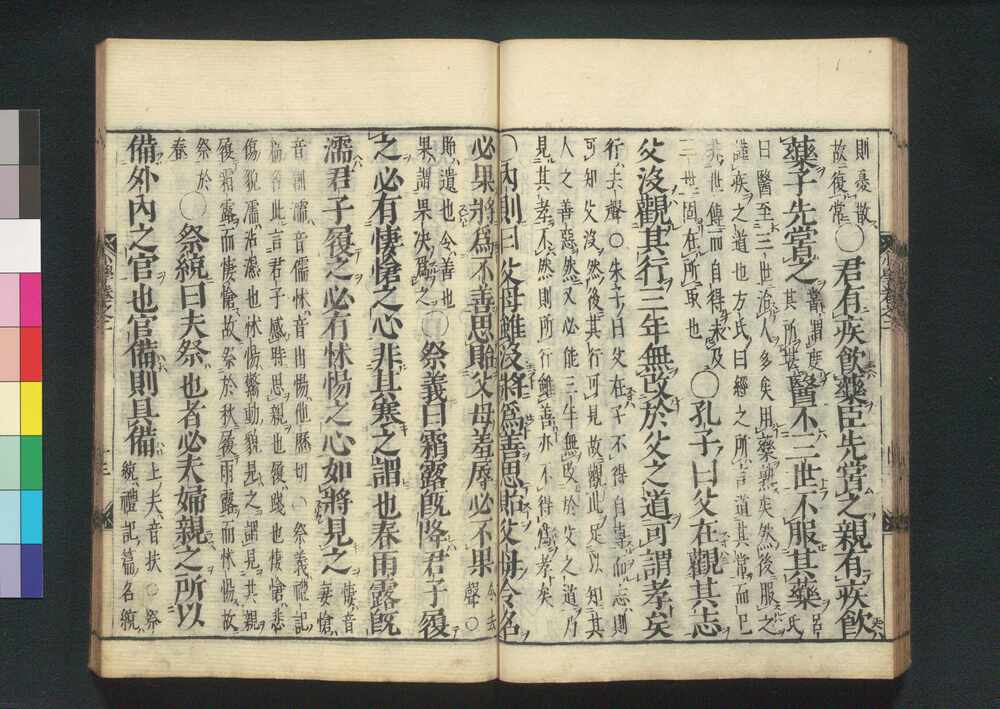 則憂散
故復常
○君有疾飲藥臣先嘗之親有疾飲
藥子先嘗之
嘗謂度
其所堪
醫不三世不服其藥
呂
氏
曰醫至三世治人多矣用藥熟矣然後服之
謹疾之道也方氏曰經之所言道其常而已
非世傳而自得未及
三世固在所取也
○孔子曰父在觀其志
父沒觀其行三年無改於父之道可謂孝矣
行去聲○朱子曰父在子不得自專而志則
可知父沒然後其行可見故觀此足以知其
人之善惡然又必能三年無改於父之道乃
見其孝不然則所行雖善亦不得爲孝矣
○內則曰父母雖沒將爲善思貽父母令名
必果將爲不善思貽父母羞辱必不果
令去
聲○
貽遺也令善也
果謂果決爲之
○祭義曰霜露既降君子履
之必有悽愴之心非其寒之謂也春雨露既
濡君子履之必有怵惕之心如將見之
悽音
妻愴
音創濡音儒怵音出惕他歷切○祭義禮記
篇名此言君子感時思親也履踐也悽愴悲
傷貌濡沾濡也怵惕驚動貌見之謂見其親
履霜露而悽愴故祭於秋履雨露而怵惕故
祭於
春
○祭統曰夫祭也者必夫婦親之所以
備外內之官也官備則具備
上夫音扶○祭
統禮記篇名統
小學卷之二